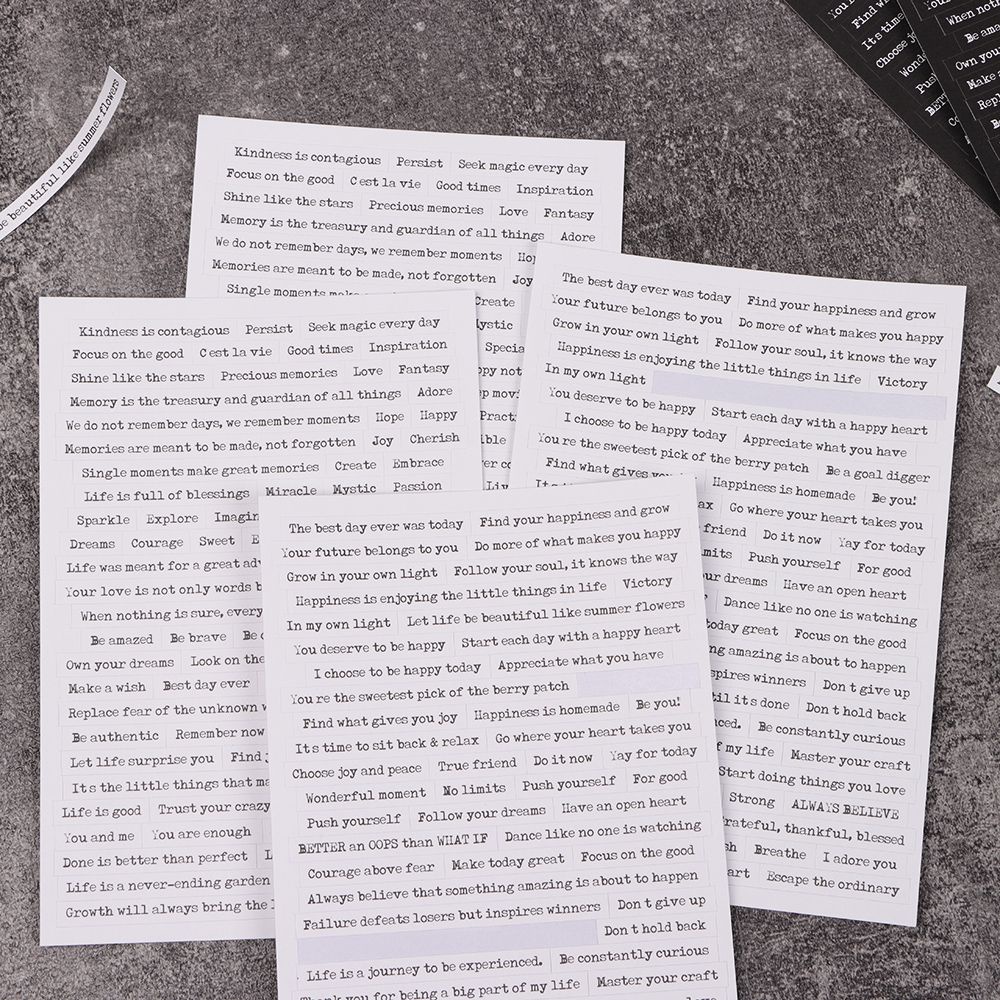 be beautiful like summer flowers
Kindness is contagious Persist Seek magic every day
Focus on the good C est la vie Good times Inspiration
Shine like the stars Precious memories Love Fantasy
Memory is the treasury and guardian of all things Adore
We do not remember days, we remember moments
Memories are meant to be made, not forgotten Joy
Single moments
Create
Kindness is contagious Persist Seek magic every day
Focus on the good C est la vie Good times Inspiration
Shine like the stars Precious memories Love Fantasy
Memory is the treasury and guardian of all things Adore
We do not remember days, we remember moments Hope Happy
Memories are meant to be made, not forgotten Joy Cherish
Single moments make great memories Create Embrace
Life is full of blessings Miracle Mystic Passion
Sparkle Explore
Dreams Courage Sweet
Life was meant for a great
Your love is not only words
When nothing is sure,
Be amazed Be brave
Own your dreams Look on the
Make a wish Best day ever
Replace fear of the unknown
Be authentic Remember now
Let life surprise you
It s the little things that
Life is good Trust your crazy
You and me You are enough
Done is better than perfect
Life is a never-ending garden
Growth will always bring the
The best day ever was today Find your happiness and grow
Your future belongs to you Do more of what makes you happy
Grow in your own light Follow your soul, it knows the way
Happiness is enjoying the little things in life Victory
In my own light
You deserve to be happy Start each day with a happy heart
I choose to be happy today Appreciate what you have
You re the sweetest pick of the berry patch Be a goal digger
Find what gives Happiness is homemade Be you!
Go where your heart takes you
friend Do it now Yay for today
Push yourself For good
dreams Have an open heart
Dance like no one is watching
today great Focus on the good
amazing is about to happen
inspires winners Don t give up
it s done Don t hold back
Be constantly curious
of my life Master your craft
Start doing things you love
Strong ALWAYS BELIEVE
thankful, blessed
Breathe I adore you
Escape the ordinary
The best day ever was today Find your happiness and grow
Your future belongs to you Do more of what makes you happy
Grow in your own light Follow your soul, it knows the way
Happiness is enjoying the little things in life Victory
In my own light Let life be beautiful like summer flowers
You deserve to be happy Start each day with a happy heart
I choose to be happy today Appreciate what you have
You re the sweetest pick of the berry patch
Find what gives you joy Happiness is homemade Be you!
It s time to sit back & relax Go where your heart takes you
Choose joy and peace True friend Do it now Yay for today
Wonderful moment No limits Push yourself For good
Push yourself Follow your dreams Have an open heart
BETTER an OOPS than WHAT IF Dance like no one is watching
Courage above fear Make today great Focus on the good
Always believe that something amazing is about to happen
Failure defeats losers but inspires winners Don t give up
Don t hold back
Life is a journey to be experienced. Be constantly curious
Thank you for being a big part of my life Master your craft
When
Own
Make